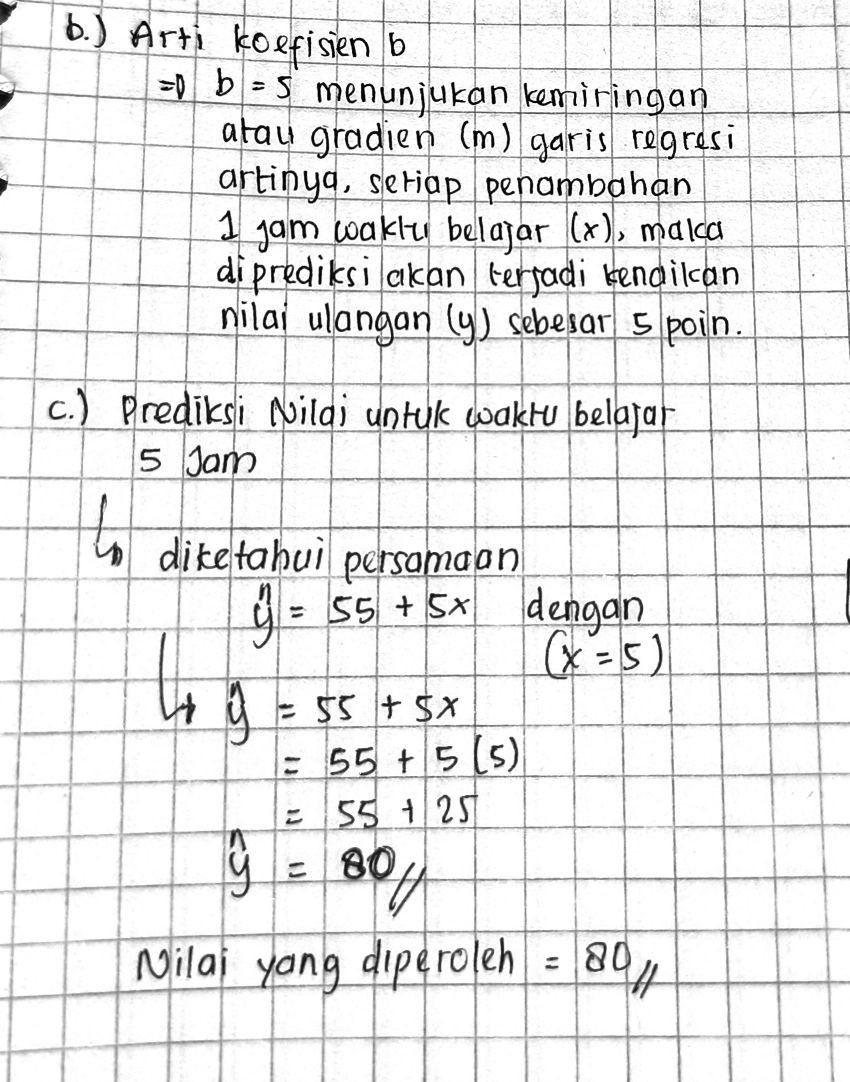 b.) Arti koefisien b
⇒ b = 5 menunjukan kemiringan
atau gradien (m) garis regresi
artinya, setiap penambahan
1 jam waktu belajar (x), maka
diprediksi akan terjadi kenaikan
nilai ulangan (y) sebesar 5 poin.
c.) Prediksi Nilai untuk waktu belajar
5 Jam
↳ diketahui persamaan
ŷ = 55 + 5x dengan
(x = 5)
↳ ŷ = 55 + 5x
= 55 + 5 (5)
= 55 + 25
ŷ = 80//
Nilai yang diperoleh = 80//